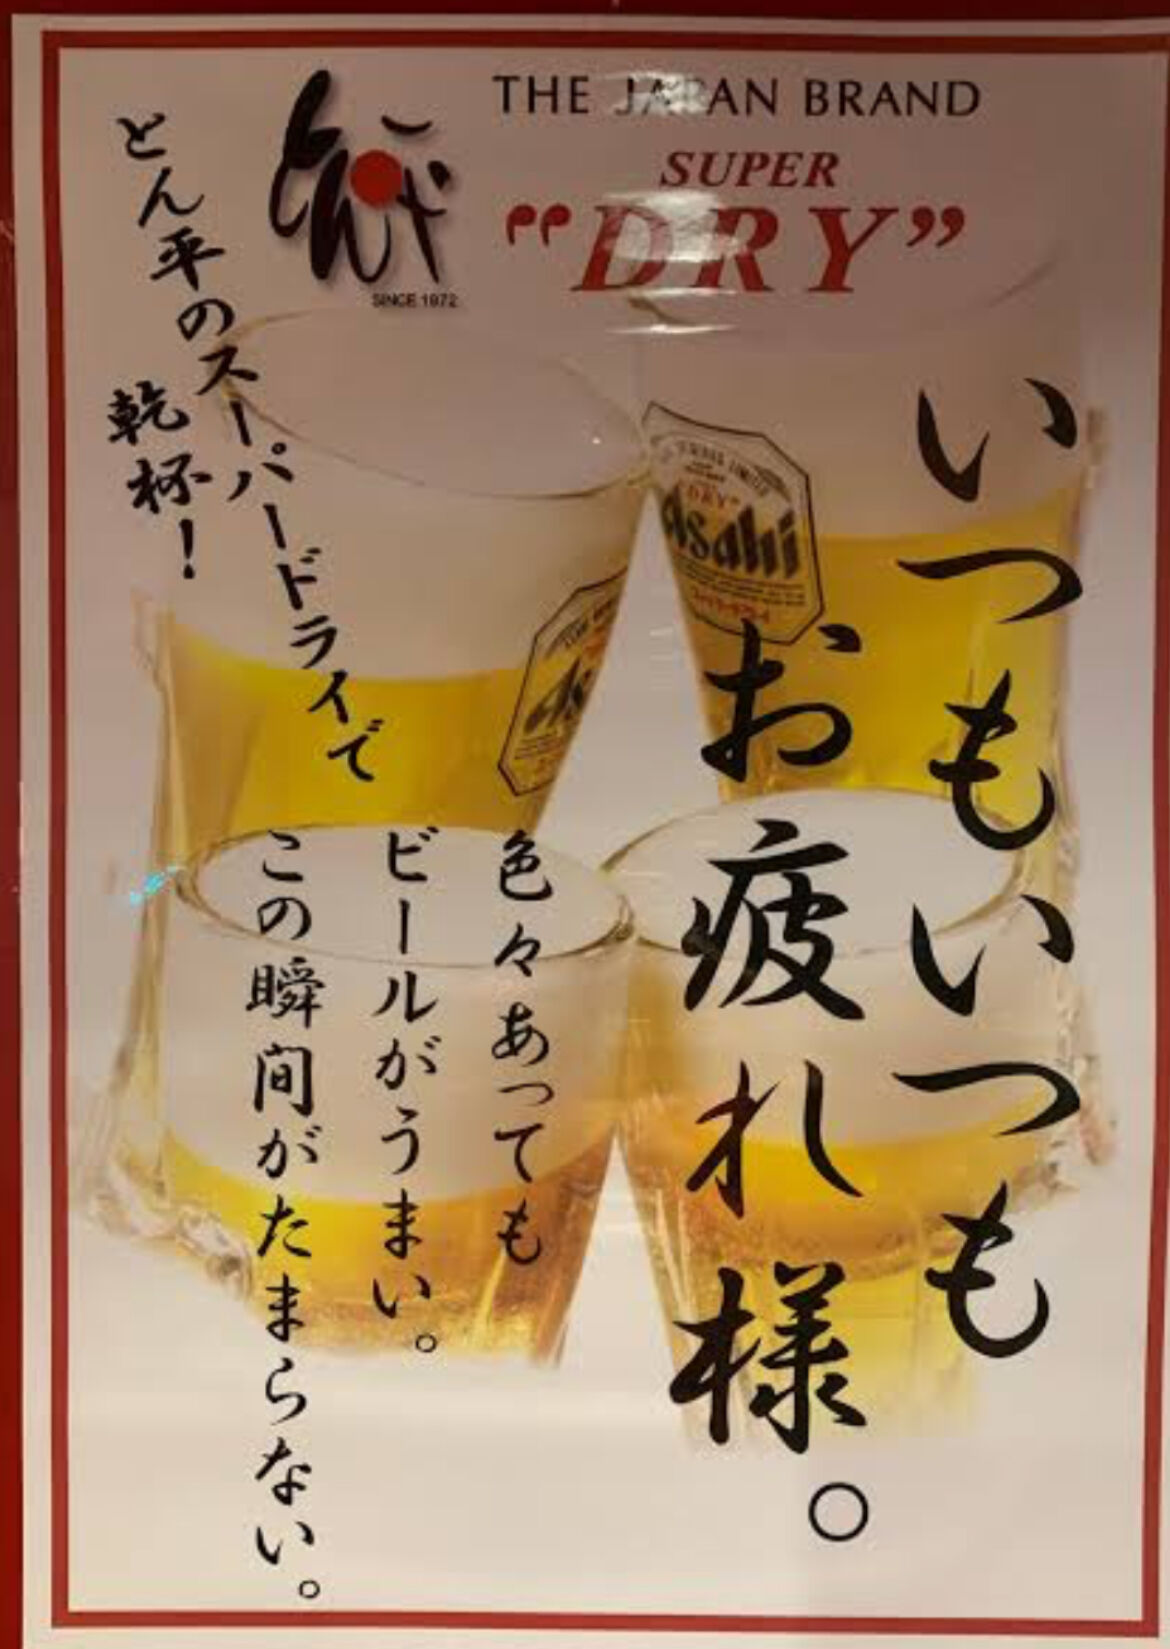 THE JAPAN BRAND
SUPER
“DRY”
SINCE 1972
いつもいつも
お疲れ様。
色々あっても
ビールがうまい。
この瞬間がたまらない。
とん平のスーパードライで
乾杯！
"DRY"
Asahi